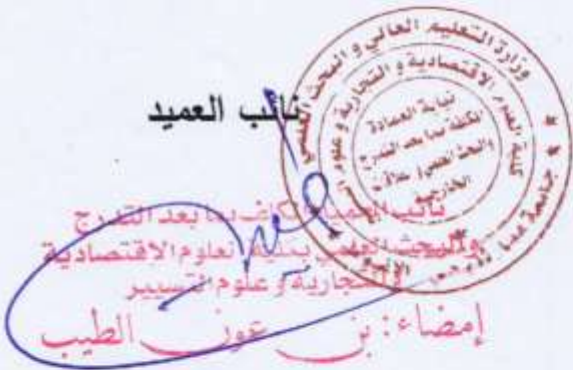 نائب العميد
وزارة التعليم العالي و البحث العلمي
كلية العلوم الاقتصادية و التجارية و علوم
نيابة العمادة
المكلفة بما بعد التدرج
والبحث العلمي و
الخارجية
نائب العميد المكلف بما بعد التدرج
والبحث العلمي بكلية العلوم الاقتصادية
و التجارية و علوم التسيير
إمضاء: بن عون الطيب